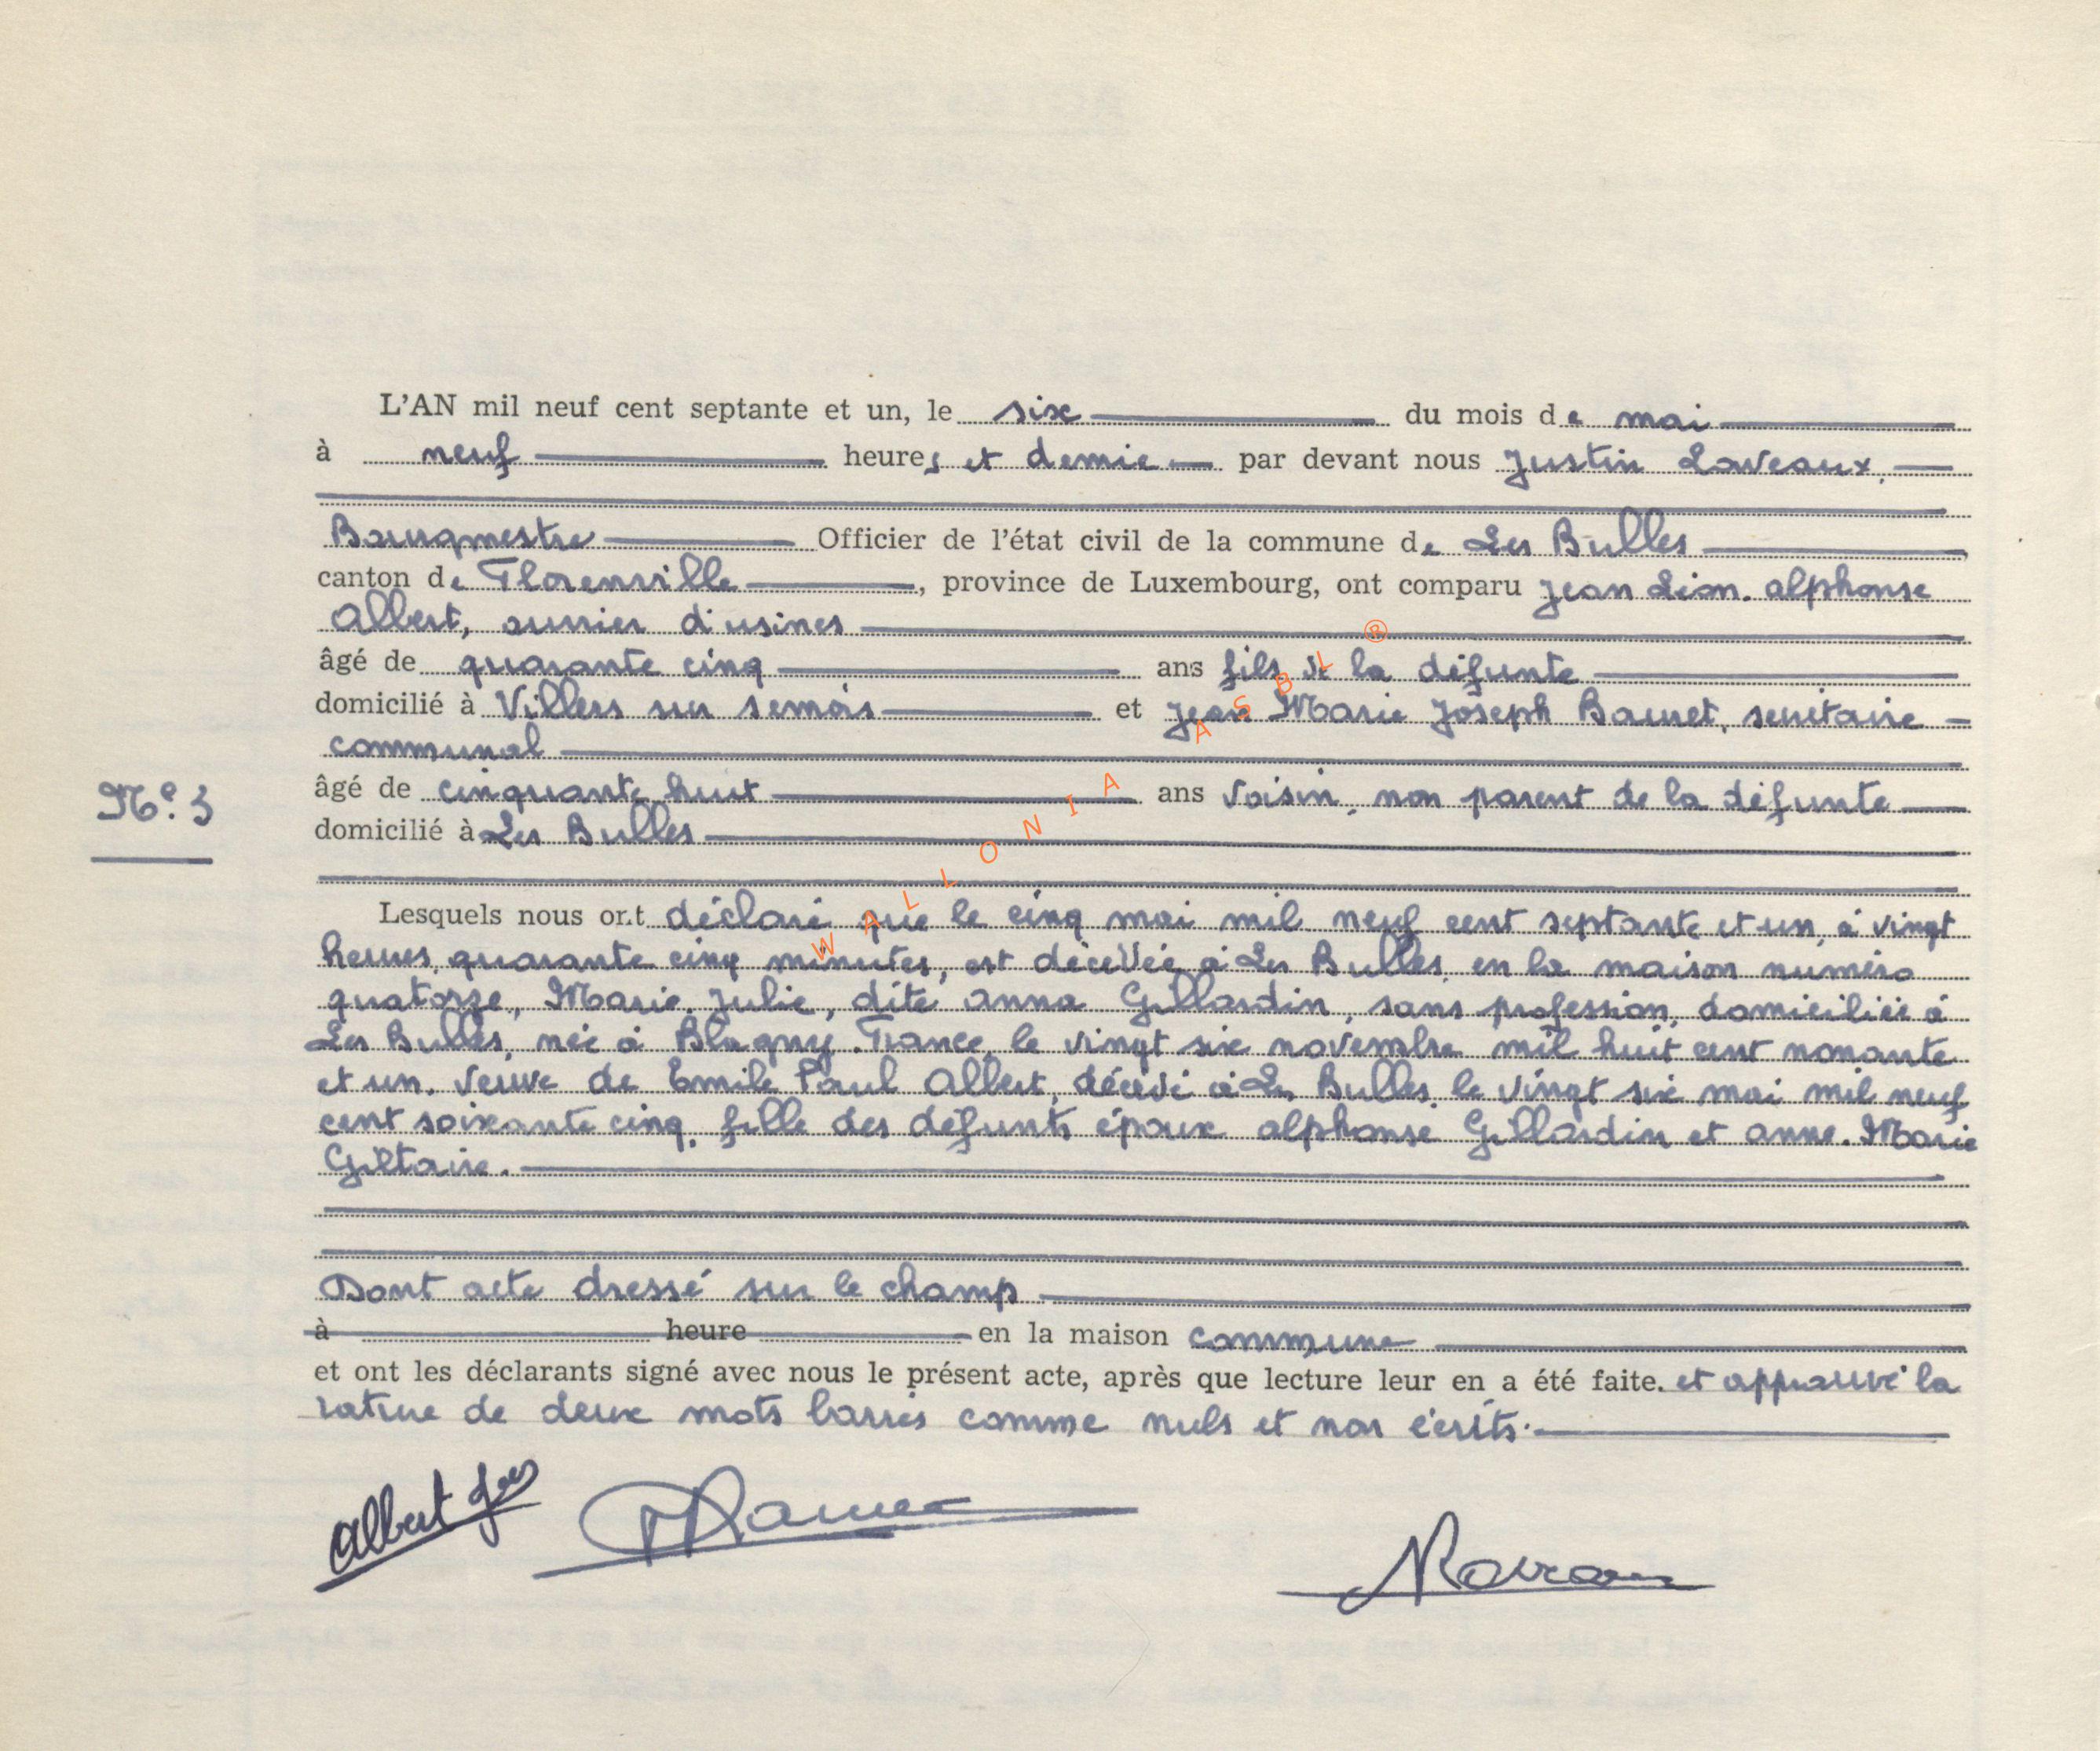 L'AN mil neuf cent septante et un, le six du mois de mai
à neuf heures et demie par devant nous Justin Laveaux,
Bourgmestre Officier de l'état civil de la commune de Les Bulles
canton de Florenville, province de Luxembourg, ont comparu Jean Léon. Alphonse
Albert, ouvrier d'usines
âgé de quarante cinq ans fils de la défunte
domicilié à Villers sur Semois et Jean Marie Joseph Bauret, secrétaire
communal
âgé de cinquante huit ans Voisin, non parent de la défunte
N°. 3
domicilié à Les Bulles
Lesquels nous ont déclaré que le cinq mai mil neuf cent septante et un, à vingt
heures, quarante cinq minutes, est décédée à Les Bulles, en la maison numéro
quatorze, Marie, Julie, dite Anna Gillardin, sans profession, domiciliée à
Les Bulles, née à Blagny. France, le vingt six novembre mil huit cent nonante
et un. Veuve de Emile Paul Albert, décédé à Les Bulles, le vingt six mai mil neuf
cent soixante cinq, fille des défunts époux Alphonse Gillardin et Anne. Marie
Giltaire.
Dont acte dressé sur le champ
à heure en la maison commune
et ont les déclarants signé avec nous le présent acte, après que lecture leur en a été faite. et approuvé la
rature de deux mots barrés comme nuls et non écrits.
Albert
WALLONIA ASBL ®